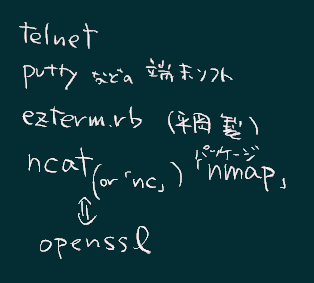 telnet
putty などの 端末ソフト
ezterm.rb (平岡 製)
ncat (or「nc」) パッケージ「nmap」
⇕
openssl